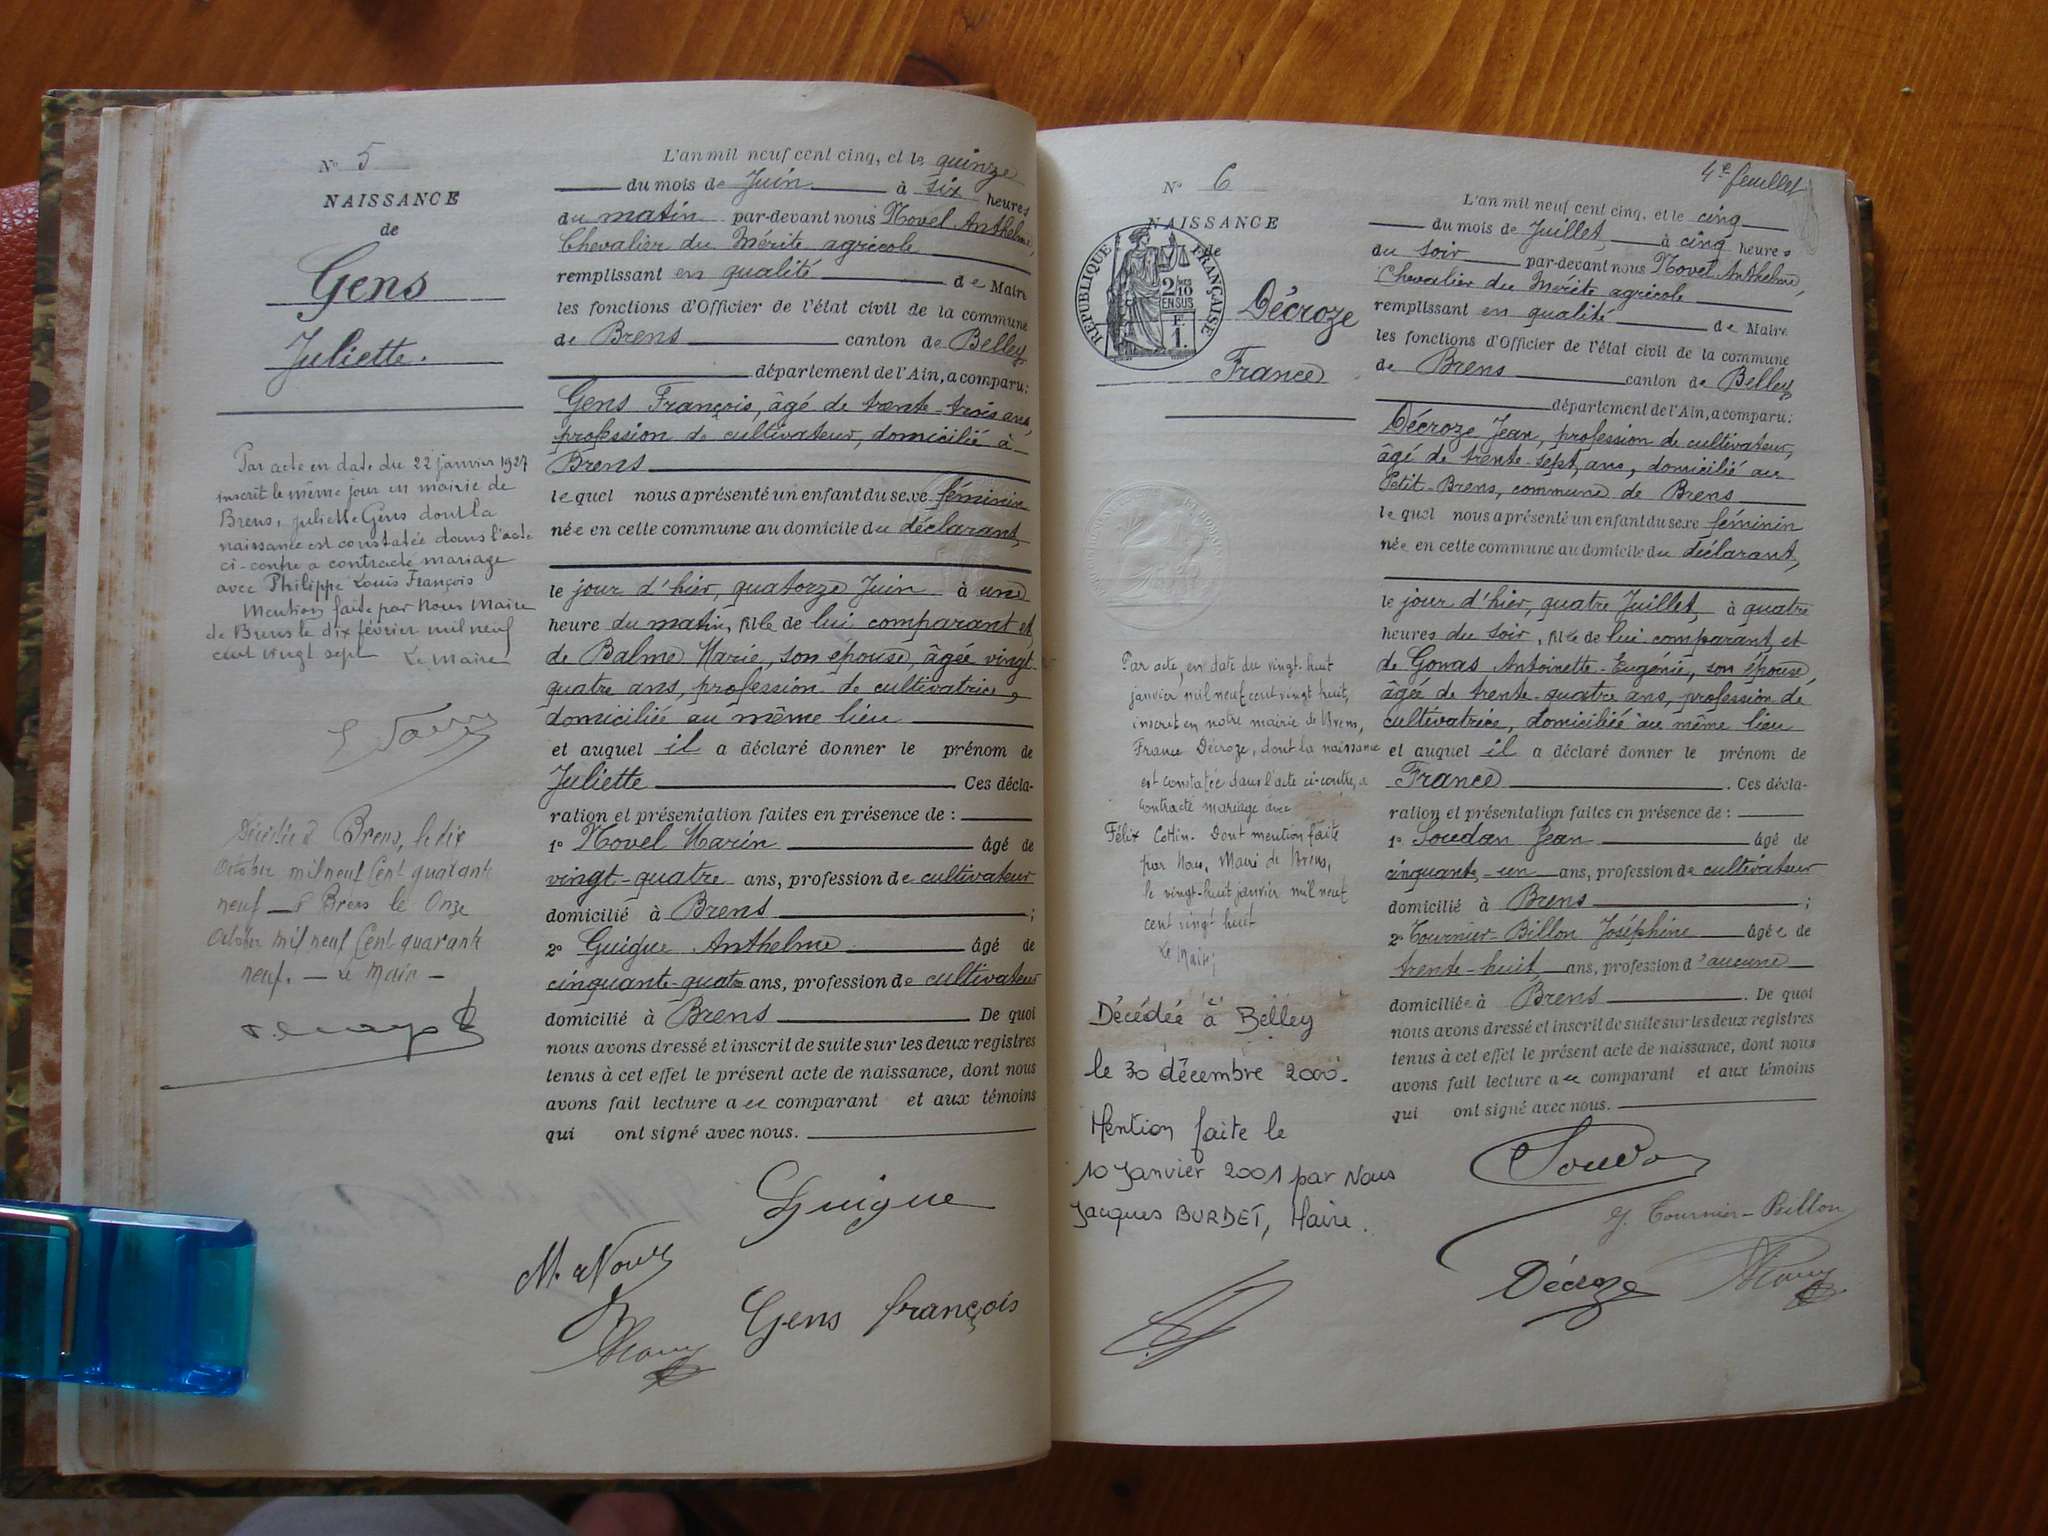 N° 5
NAISSANCE
de
Gens
Juliette.
Par acte en date du 22 janvier 1927
inscrit le même jour en mairie de
Brens, Juliette Gens dont la
naissance est constatée dans l'acte
ci-contre a contracté mariage
avec Philippe Louis François
Mention faite par Nous Maire
de Brens le dix février mil neuf
cent vingt sept Le Maire
Décédée à Brens, le dix
Octobre mil neuf Cent quarante
neuf — Brens le Onze
Octobre mil neuf Cent quarante
neuf. — Le Maire —
L'an mil neuf cent cinq, et le quinze
du mois de Juin à six heures
du matin par-devant nous Novel Anthelme,
Chevalier du Mérite agricole
remplissant en qualité de Maire
les fonctions d'Officier de l'état civil de la commune
de Brens canton de Belley
département de l'Ain, a comparu:
Gens François, âgé de trente-trois ans,
profession de cultivateur, domicilié à
Brens
le quel nous a présenté un enfant du sexe féminin
née en cette commune au domicile du déclarant,
le jour d'hier, quatorze Juin à une
heure du matin, fille de lui comparant et
de Balme Marie, son épouse, âgée vingt-
quatre ans, profession de cultivatrice,
domiciliée au même lieu
et auquel il a déclaré donner le prénom de
Juliette Ces décla-
ration et présentation faites en présence de :
1° Novel Marin âgé de
vingt-quatre ans, profession de cultivateur
domicilié à Brens ;
2° Guigue Anthelme âgé de
cinquante-quatre ans, profession de cultivateur
domicilié à Brens De quoi
nous avons dressé et inscrit de suite sur les deux registres
tenus à cet effet le présent acte de naissance, dont nous
avons fait lecture au comparant et aux témoins
qui ont signé avec nous.
Guigue
M. Novel
Gens françois
4e feuillet
N° 6
NAISSANCE
de
RÉPUBLIQUE FRANÇAISE
2/10
EN SUS
F.
1.
Décroze
France
Par acte, en date du vingt-huit
janvier mil neuf cent vingt huit,
inscrit en notre mairie de Brens,
France Décroze, dont la naissance
est constatée dans l'acte ci-contre, a
contracté mariage avec
Félix Cottin. Dont mention faite
par Nous, Maire de Brens,
le vingt-huit janvier mil neuf
cent vingt huit
Le Maire
Décédée à Belley
le 30 décembre 2000.
Mention faite le
10 Janvier 2001 par Nous
Jacques BURDET, Maire.
L'an mil neuf cent cinq, et le cinq
du mois de Juillet à cinq heures
du soir par-devant nous Novel Anthelme,
Chevalier du Mérite agricole
remplissant en qualité de Maire
les fonctions d'Officier de l'état civil de la commune
de Brens canton de Belley
département de l'Ain, a comparu:
Décroze Jean, profession de cultivateur,
âgé de trente-sept ans, domicilié au
Petit-Brens, commune de Brens
le quel nous a présenté un enfant du sexe féminin
née en cette commune au domicile du déclarant,
le jour d'hier, quatre Juillet, à quatre
heures du soir, fille de lui comparant et
de Gonas Antoinette-Eugénie, son épouse,
âgée de trente-quatre ans, profession de
cultivatrice, domiciliée au même lieu
et auquel il a déclaré donner le prénom de
France . Ces décla-
ration et présentation faites en présence de :
1° Soudan Jean âgé de
cinquante-un ans, profession de cultivateur
domicilié à Brens ;
2° Tournier-Billon Joséphine âgée de
trente-huit ans, profession d'aucune
domiciliée à Brens . De quoi
nous avons dressé et inscrit de suite sur les deux registres
tenus à cet effet le présent acte de naissance, dont nous
avons fait lecture au comparant et aux témoins
qui ont signé avec nous.
Soudan
J. Tournier-Billon
Décroze